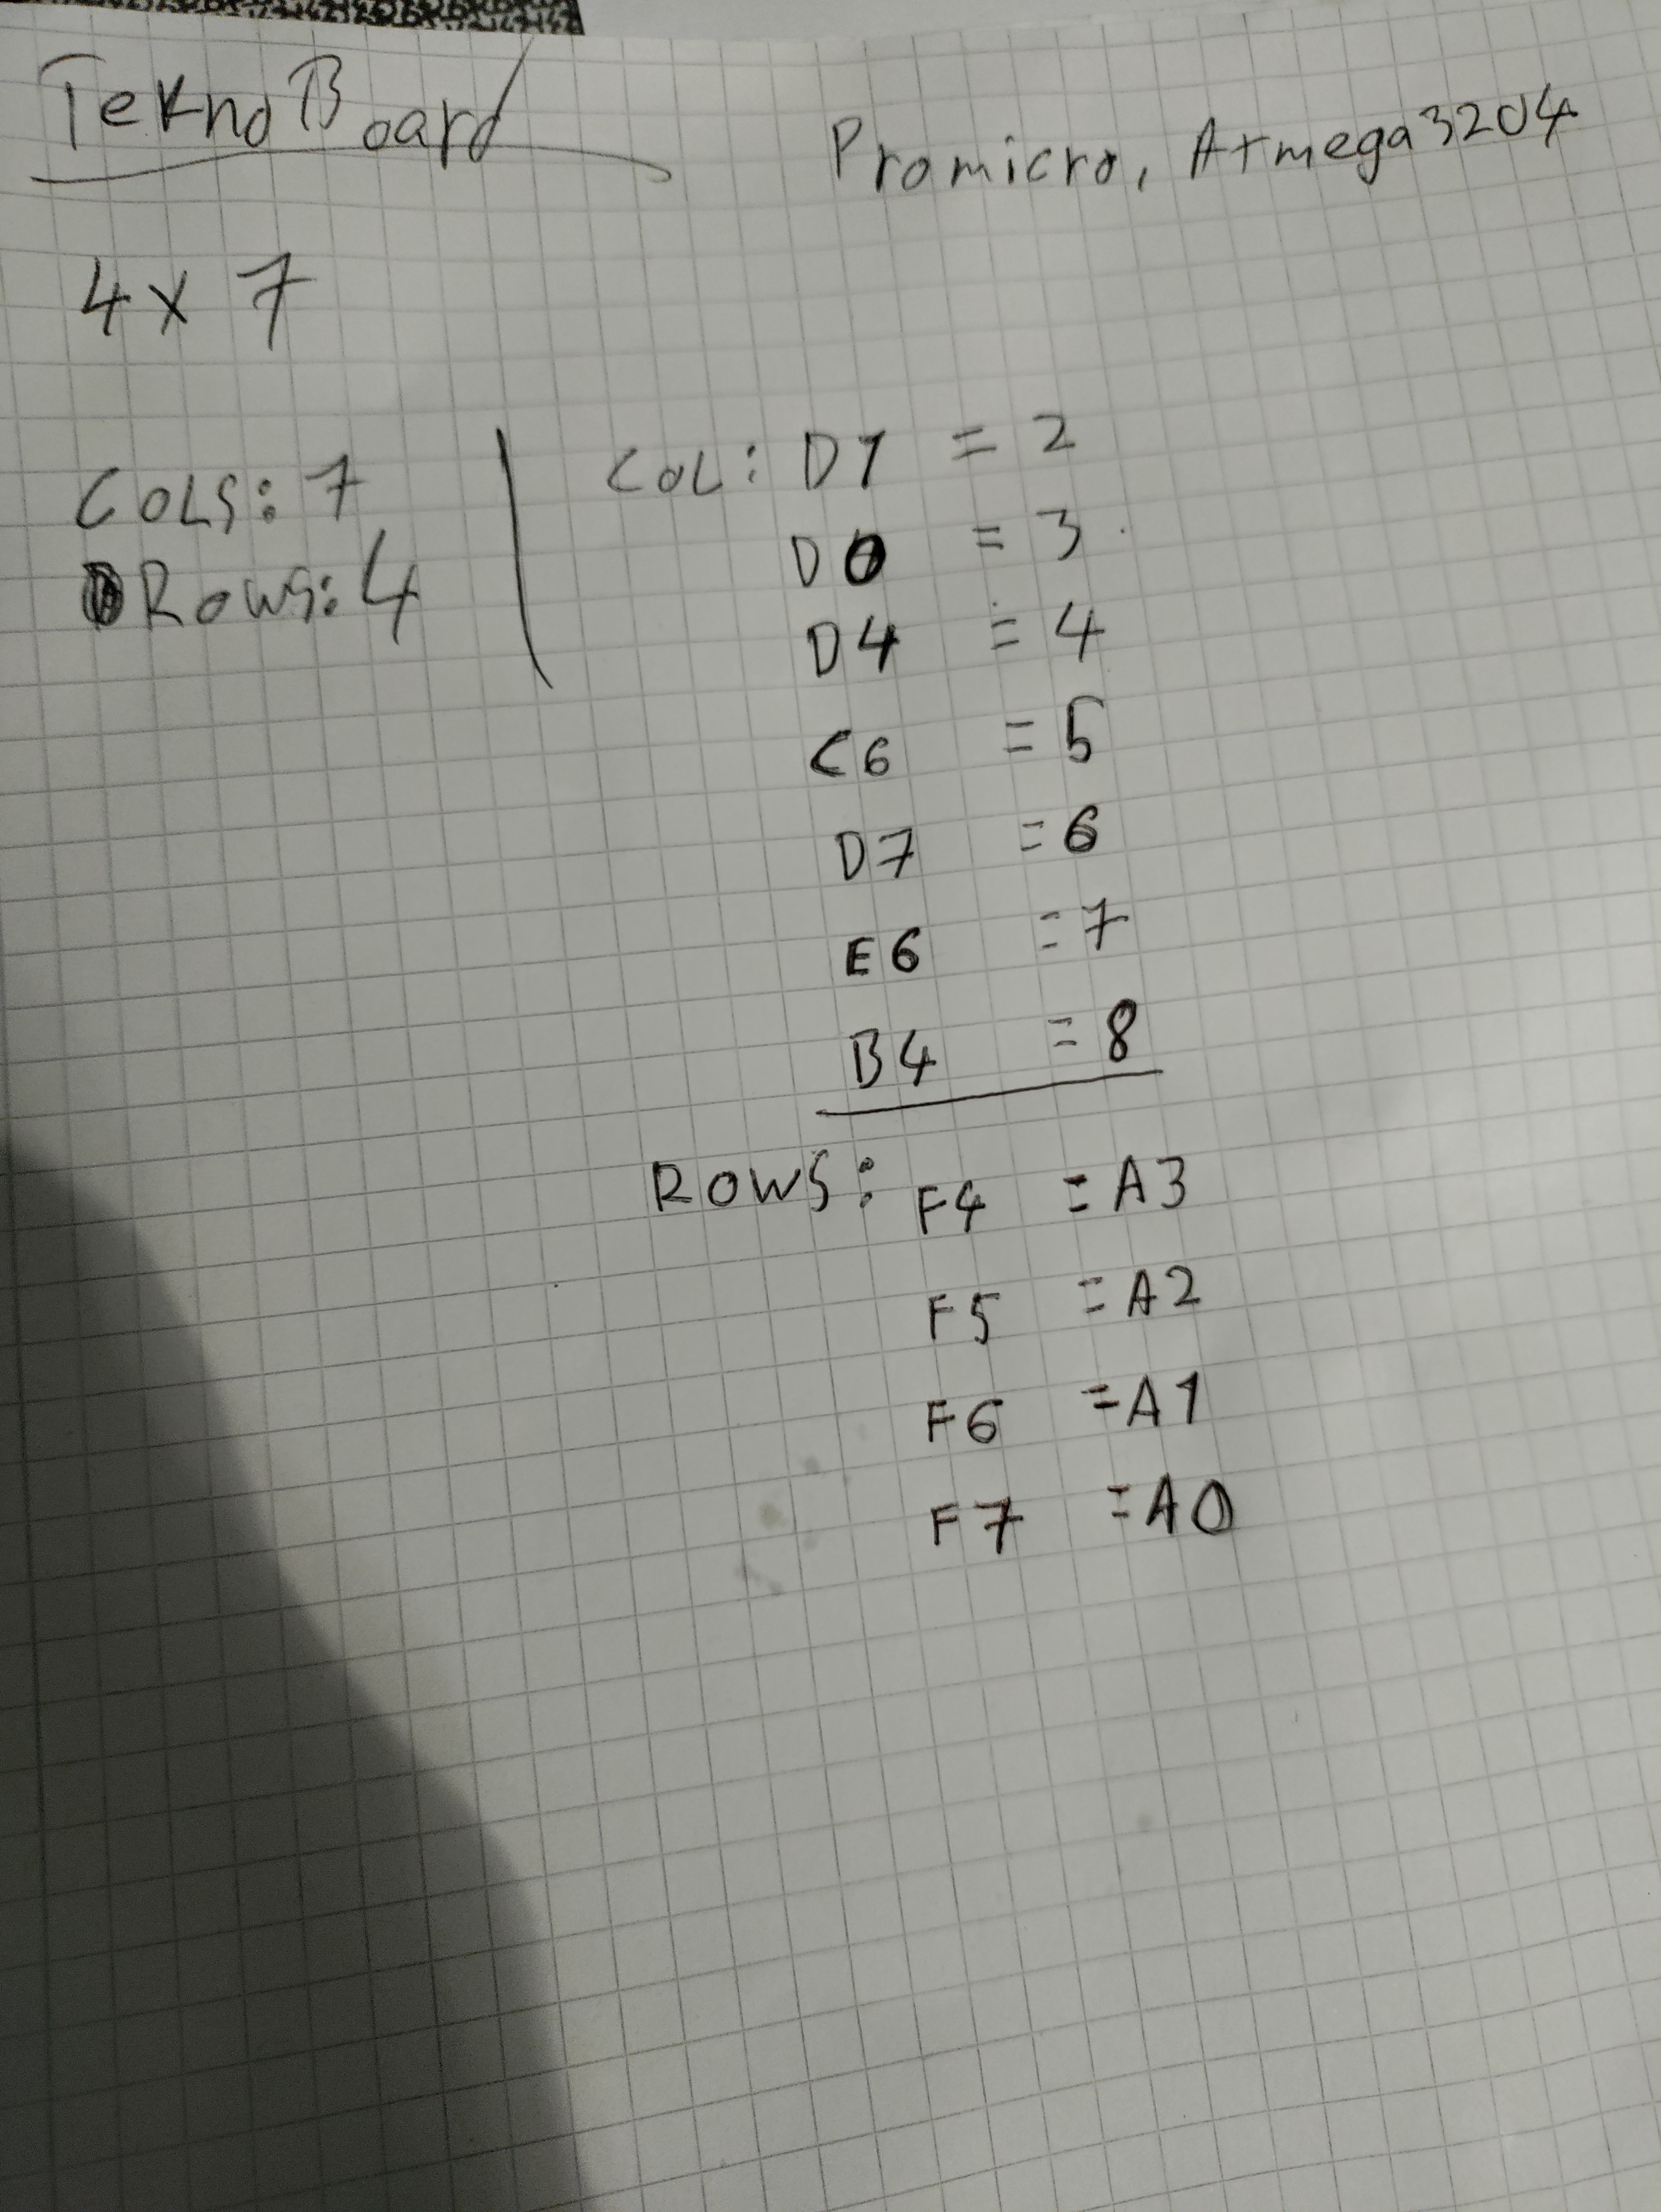 TeknoBoard
Promicro, Atmega32U4
4x7
COLS: 7
Rows: 4
COL: D1 = 2
D0 = 3
D4 = 4
C6 = 5
D7 = 6
E6 = 7
B4 = 8
ROWS: F4 = A3
F5 = A2
F6 = A1
F7 = A0